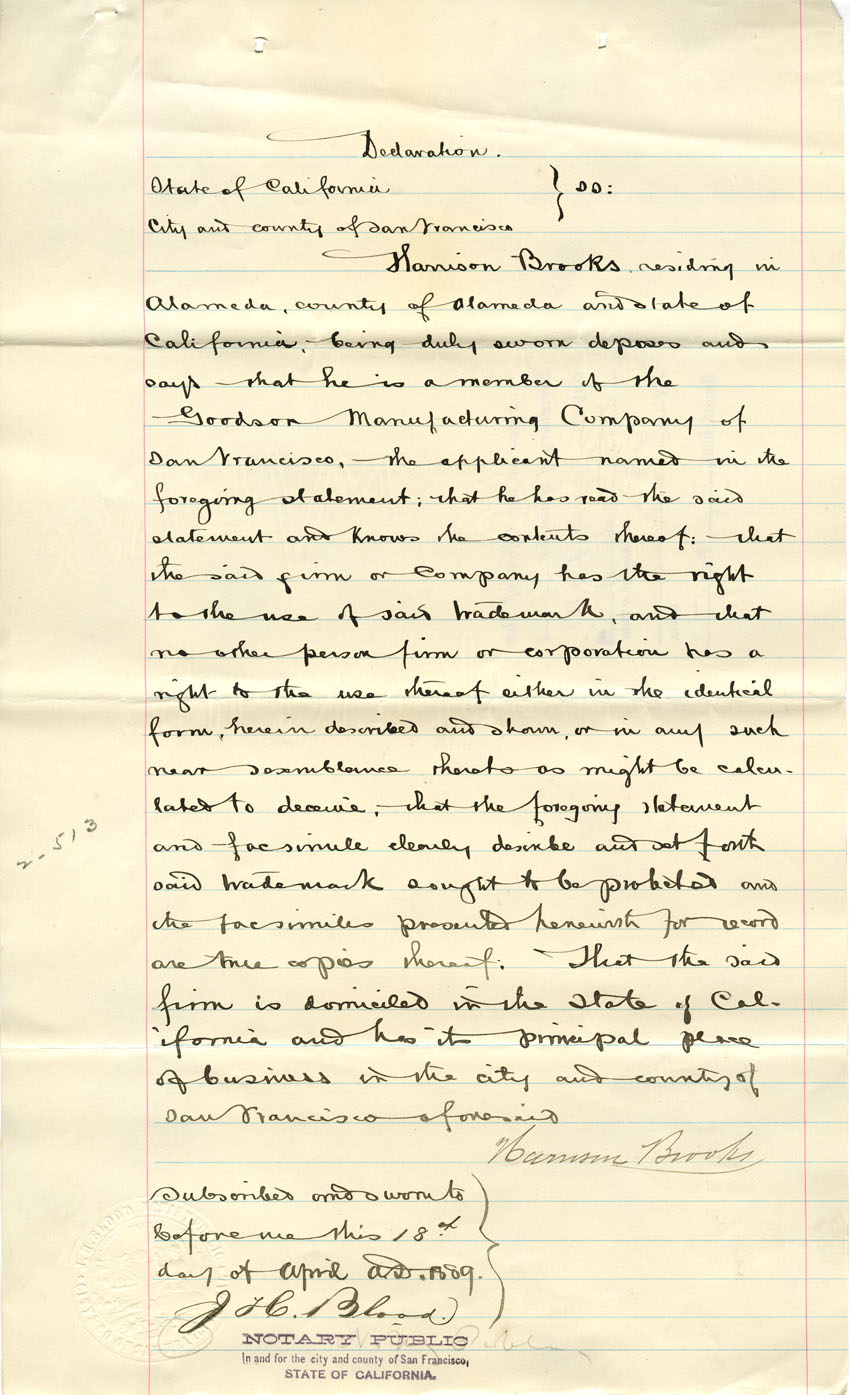 Declaration.
State of California } SS:
City and county of San Francisco
Harrison Brooks residing in
Alameda, county of Alameda and State of
California, being duly sworn deposes and
says that he is a member of the
Goodson Manufacturing Company of
San Francisco, the applicant named in the
foregoing statement; that he has read the said
statement and knows the contents thereof: that
the said firm or Company has the right
to the use of said trademark, and that
no other person firm or corporation has a
right to the use thereof either in the identical
form, herein described and shown, or in any such
near resemblance thereto as might be calcu-
lated to deceive, that the foregoing statement
and facsimile clearly describe and set forth
said trademark sought to be protected and
the facsimiles presented herewith for record
are true copies thereof: That the said
firm is domiciled in the State of Cal-
ifornia and has its principal place
of business in the city and county of
San Francisco aforesaid
Harrison Brooks
Subscribed and sworn to
before me this 18th
day of April A.D. 1889.
J H. Blood
NOTARY PUBLIC
In and for the city and county of San Francisco,
STATE OF CALIFORNIA.
2-513